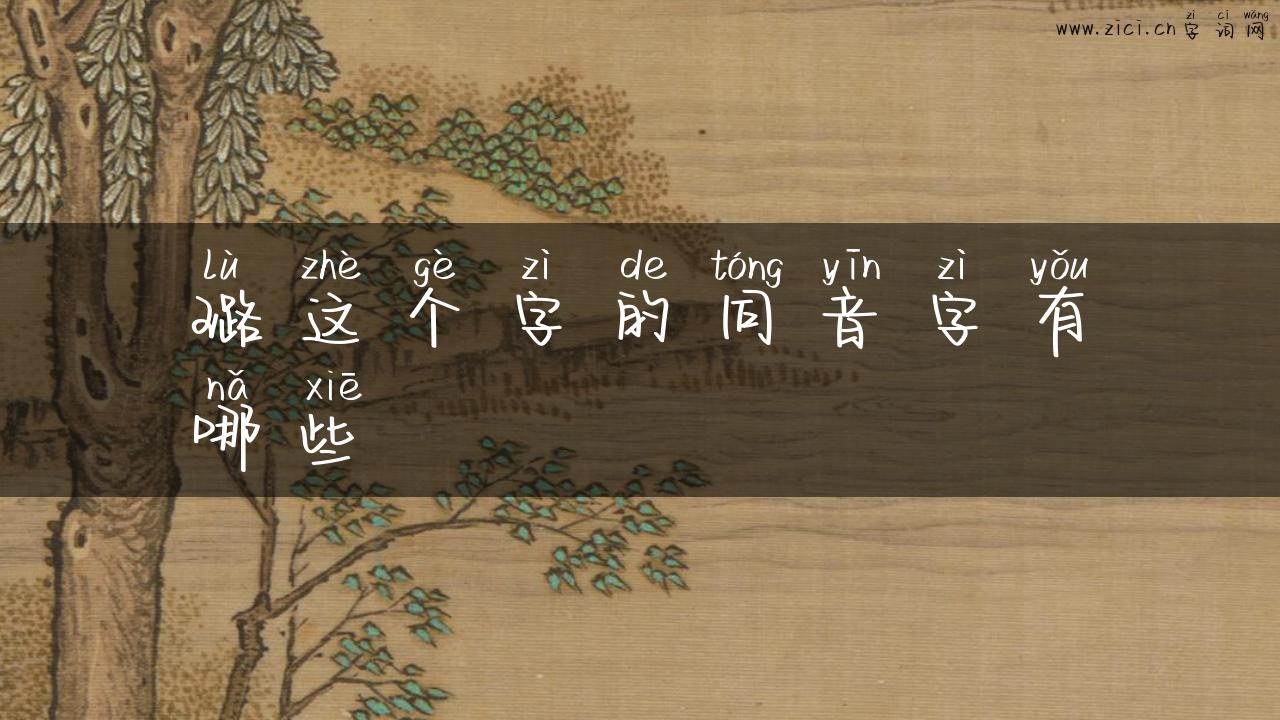 zì cí wǎng
www.zici.cn 字词网
lù zhè gè zì de tóng yīn zì yǒu
璐这个字的同音字有
nǎ xiē
哪些